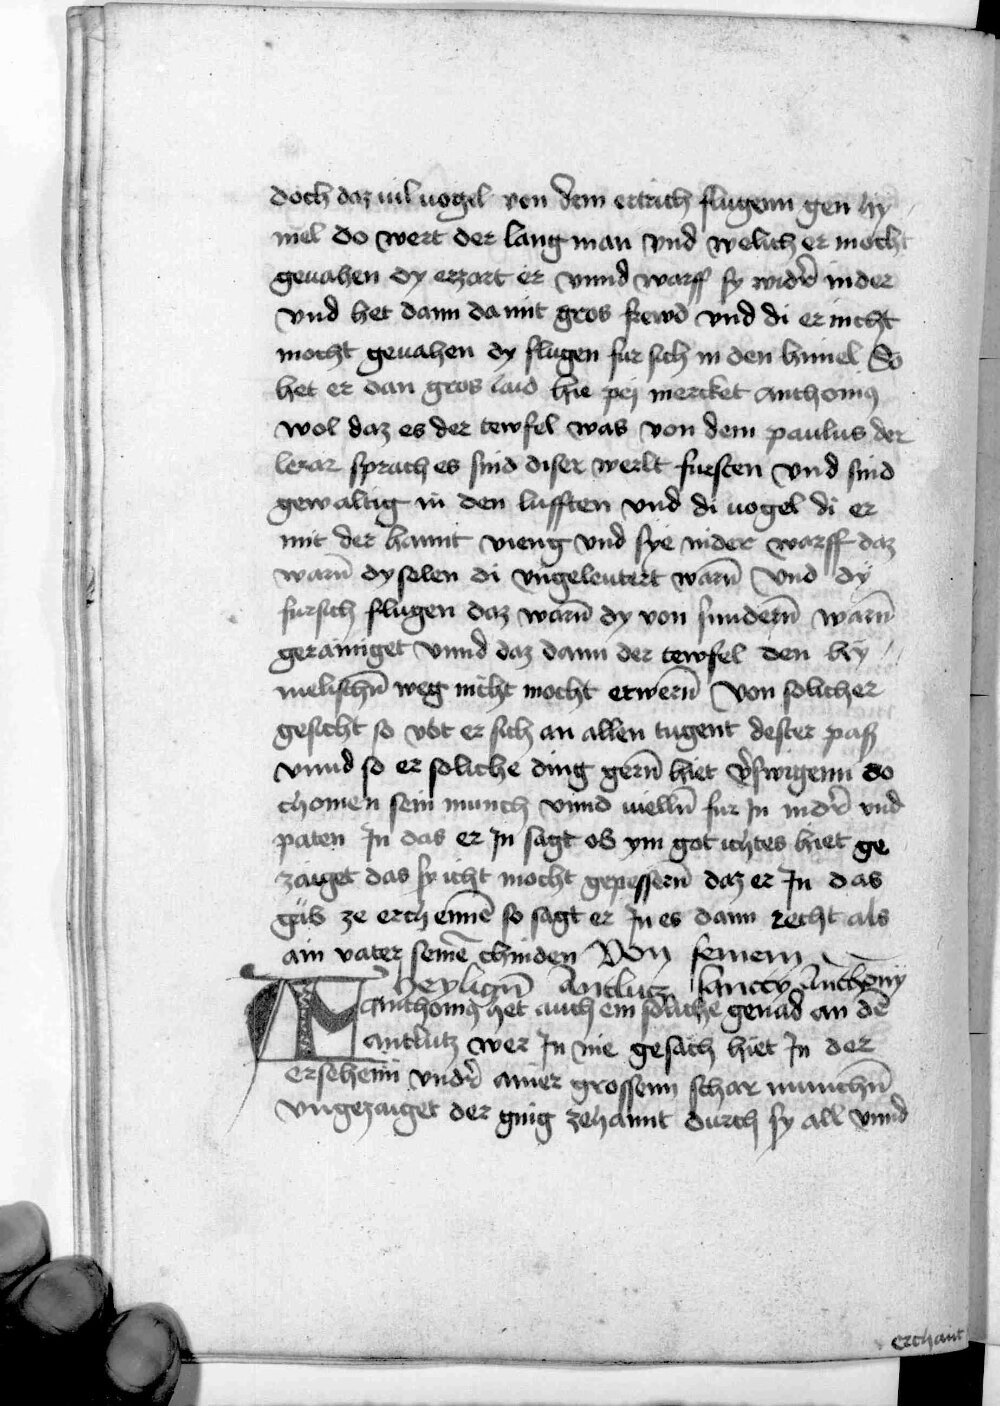 doch daz vil vogel von dem ertrich flugenn gen hy
mel do wert der lang man vnd welich er mocht
geuahen dy erzart er vnnd warff sy widr̄ inder
vnd het dann da mit gros frewd vnd di er nicht
mocht geuahen dy flugen fur sich in den himel Do
het er dan gros laid hie pej mercket anthoniꝰ
wol daz es der tewfel was von dem paulus der
lerar sprach es sind diser werlt fursten vnd sind
gewaltig in den lufften vnd di vogel di er
mit der hannt vieng vnd sye nider warff daz
warn̄ dy selen di vngeleutert warn̄ Vnd dy
fursich flugen daz warn̄ dy von sundern̄ warn̄
gerainiget vnnd daz dann der tewfel den hy
melischn̄ weg nicht mocht erwern̄ Von solicher
gesicht so vbt er sich an allen tugent dester pas
vnnd so er soliche ding gern̄ hiet v̄swigenn do
chomen sein munch vnnd vielln̄ fur In nidr̄ vnd
paten In das er In sagt ob ym got ichtes hiet ge
zaiget das sy icht mocht gepessern̄ daz er In das
gäb ze erchennē so sagt er In es dann recht als
ain vater seinē chinden Von seinem
heylign̄ Antlucz sancty Anthonij
Anthoniꝰ het auch ein soliche genad an dē
antlutz wer In nie gesach hiet In der
ersehenn vndr̄ ainer grossenn schar munchn̄
vngezaiget der ging zehannt durch sy all vnnd
erchant